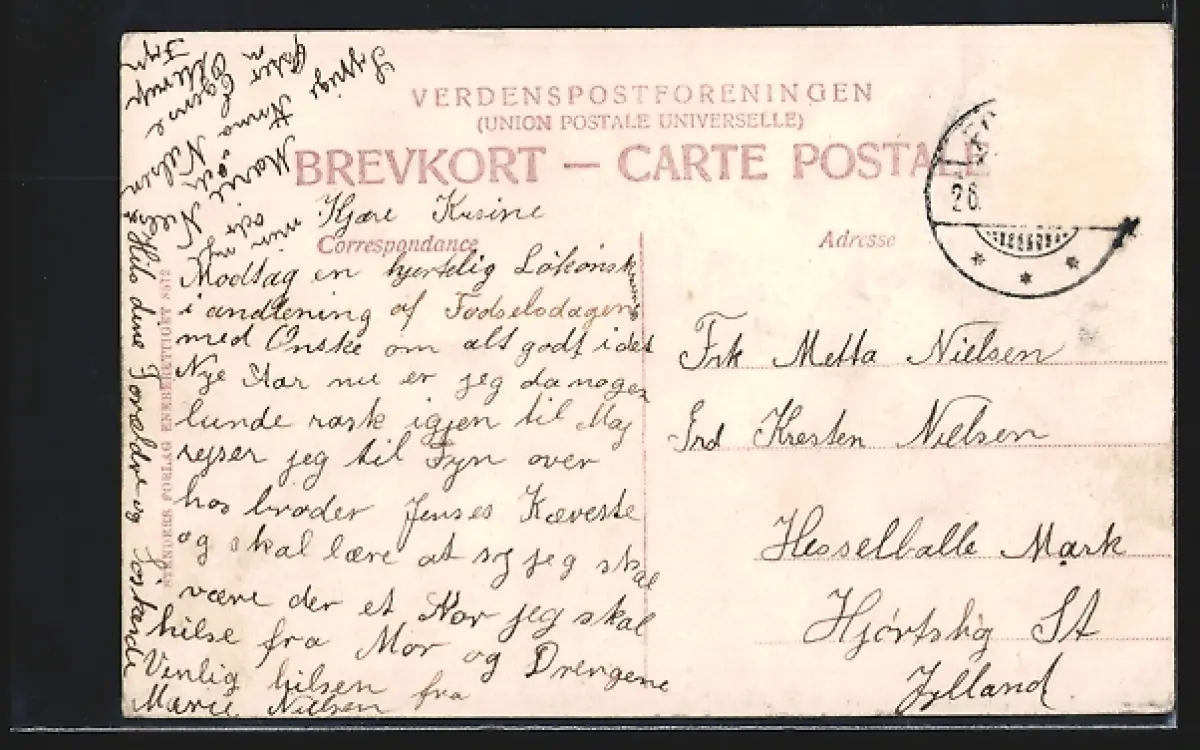 VERDENSPOSTFORENINGEN
(UNION POSTALE UNIVERSELLE)
BREVKORT — CARTE POSTALE
Correspondance
Adresse
26.
Kjære Kusine
Modtag en hjertelig Løkønsk
i andlening af Fødselsdagen
med Ønske om alt godt i det
Nye Aar nu er jeg da nogen
lunde rask igjen til Maj
rejser jeg til Fyn over
hos broder Jenses Kæveste
og skal lære at sy jeg skal
være der et Aar jeg skal
hilse fra Mor og Drengene
Venlig hilsen fra
Marie Nielsen
Hils dine Forældre og Søskende
Frk Metta Nielsen
Ird Kresten Nielsen
Hesselballe Mark
Hjørtshøj St
Jylland.
STENDERS FORLAG ENEBERETTIGET
Anna Nielsen
Egense
Fyn